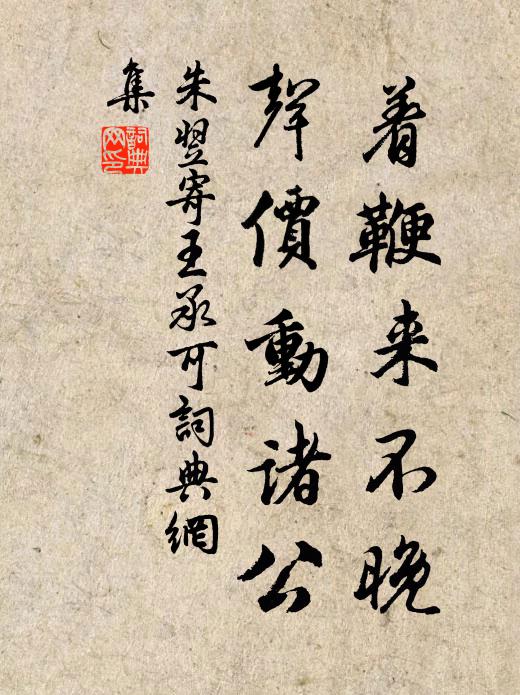 着鞭来不晚
聲價動諸公
朱翌寄王承可詞典網
集
詞典
网印